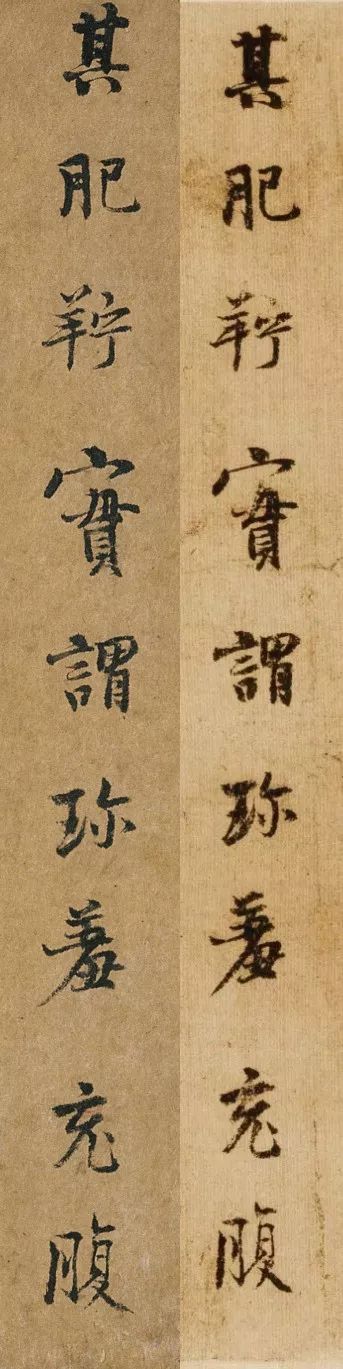 其肥羜實謂珎羞充腹
其肥羜實謂珎羞充腹